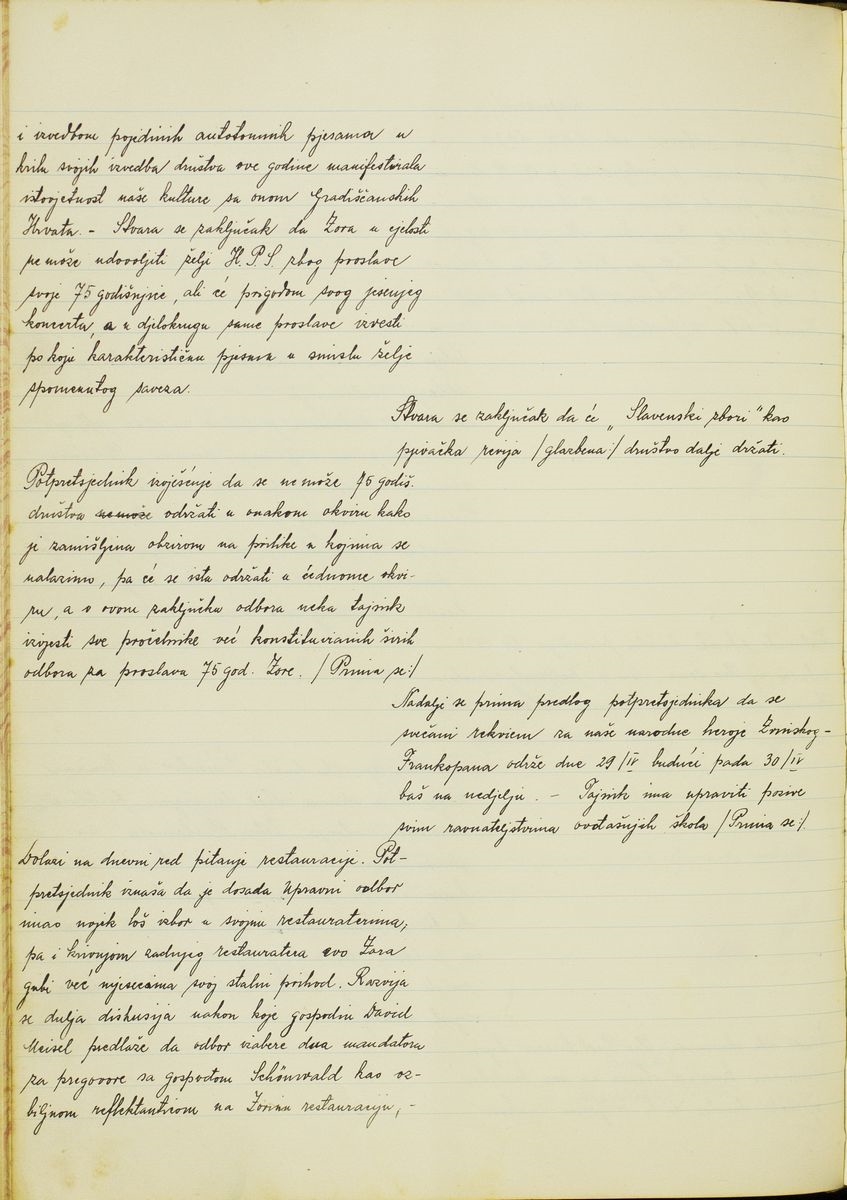 i izvedbom pojedinih autotomnih pjesama u
krilu svojih izvedba društva ove godine manifestirala
istovjetnost naše kulture sa onom Gradišćanskih
Hrvata. - Stvara se zaključak da Zora u cjelosti
ne može udovoljiti želji H.P.S. zbog proslave
svoje 75 godišnjice, ali će prigodom svog jesenjeg
koncerta, a u djelokrugu same proslave izvesti
po koju karakterističnu pjesmu u smislu želje
spomenutog saveza.
Stvara se zaključak da će „Slavenski zbori" kao
pjevačka revija /glazbena:/ društvo dalje držati.
Potpretsjednik izvješćuje da se ne može 75 godiš.
društva ne može održati u onakom okviru kako
je zamišljena obzirom na prilike u kojima se
nalazimo, pa će se ista održati u čednome okvi-
ru, a o ovom zaključku odbora neka tajnik
izvijesti sve pročelnike već konstituiranih širih
odbora za proslavu 75 god. Zore. /Prima se:/
Nadalje se prima predlog potpretsjednika da se
svečani rekviem za naše narodne heroje Zrinskog-
Frankopana održe dne 29/IV budući pada 30/IV
baš na nedjelju. - Tajnik ima upraviti pozive
svim ravnateljstvima ovdašnjih škola /Prima se:/.
Dolazi na dnevni red pitanje restauracije. Pot-
pretsjednik iznaša da je dosada Upravni odbor
imao uvjek loš izbor u svojim restauraterima,
pa i krivnjom zadnjeg restauratera evo Zora
gubi već mjesecima svoj stalni prihod. Razvija
se dulja diskusija nakon koje gospodin David
Meisel predlaže da odbor izabere dva mandatora
za pregovore sa gospodom Schönwald kao oz-
biljnom reflektanticom na Zorinu restauraciju, -